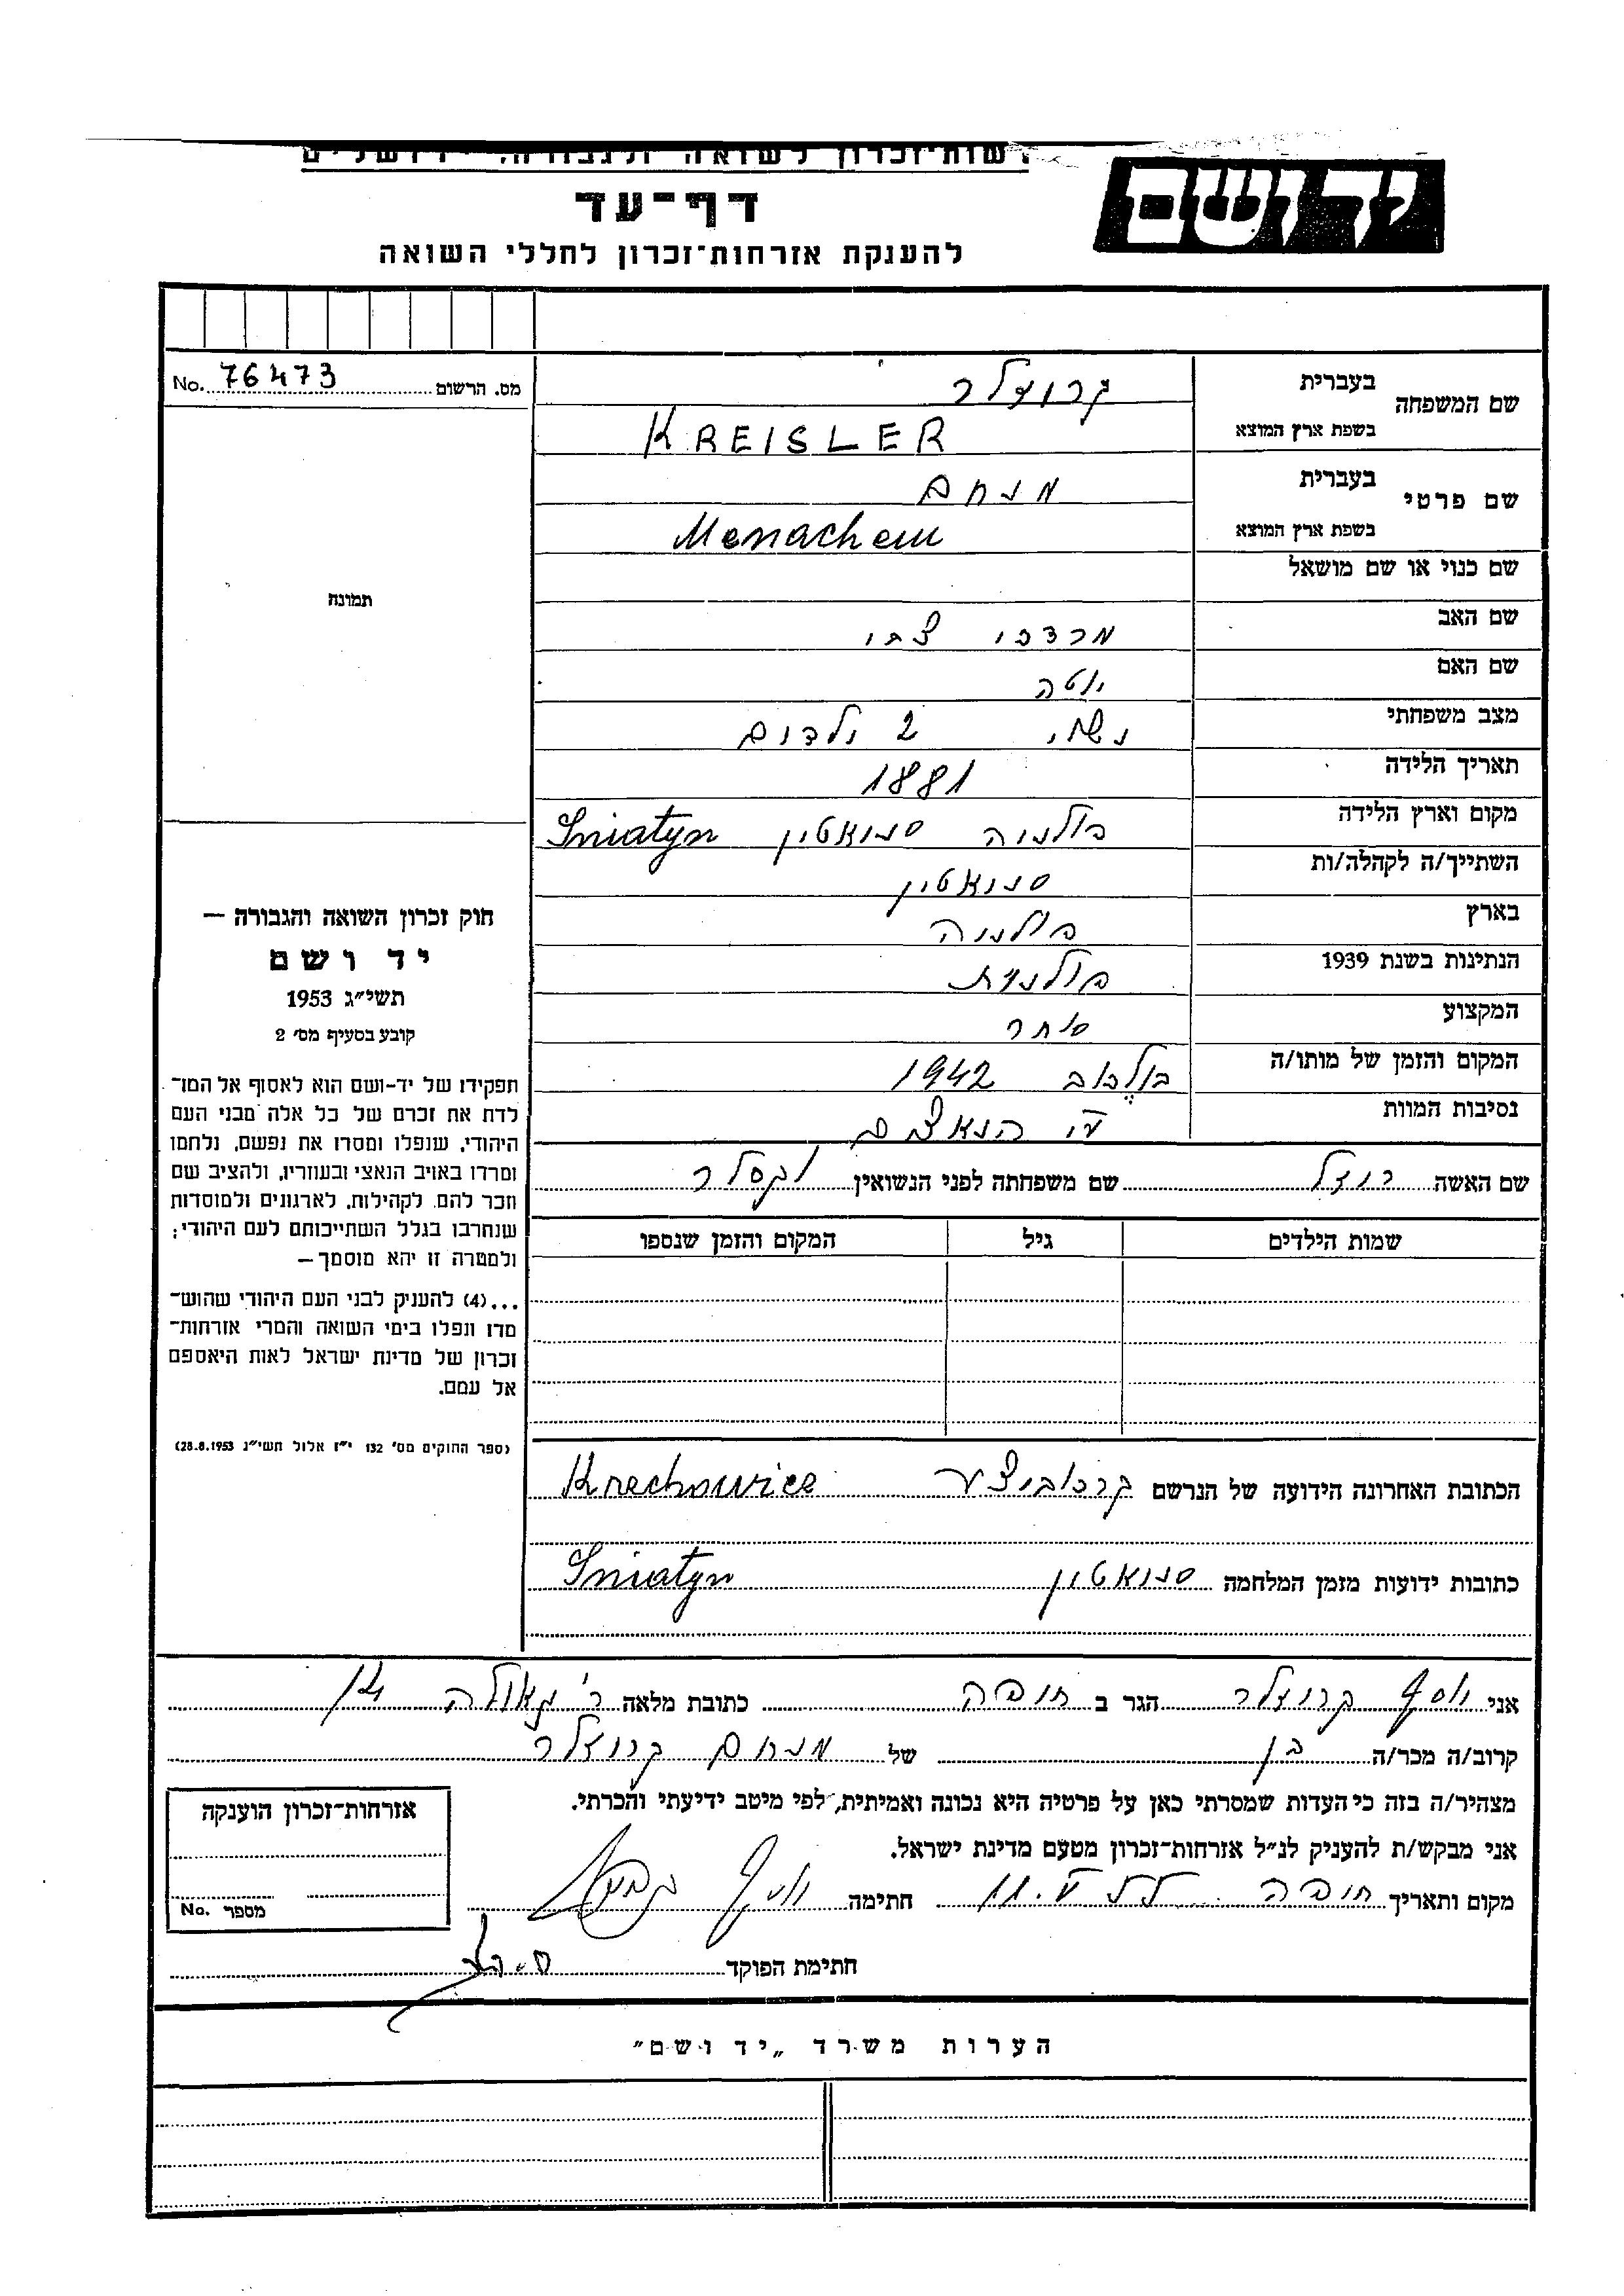 רשות־זכרון לשואה ולגבורה, ירושלים
יד ושם
דף־עד
להענקת אזרחות־זכרון לחללי השואה
מס. הרשום 76473 No.
שם המשפחה
בעברית קרייזלר
בשפת ארץ המוצא KREISLER
שם פרטי
בעברית מנחם
בשפת ארץ המוצא Menachem
שם כנוי או שם מושאל
שם האב מרדכי צבי
שם האם יוטה
מצב משפחתי נשוי 2 ילדים
תאריך הלידה 1881
מקום וארץ הלידה פולניה סניאטין Sniatyn
השתייך/ה לקהלה/ות סניאטין
בארץ פולניה
הנתינות בשנת 1939 פולנית
המקצוע סוחר
המקום והזמן של מותו/ה 1942
נסיבות המוות ע"י הנאצים
שם האשה רייזל שם משפחתה לפני הנשואין וקסלר
שמות הילדים גיל המקום והזמן שנספו
הכתובת האחרונה הידועה של הנרשם קרכוביצע Krechowice
כתובות ידועות מזמן המלחמה סניאטין Sniatyn
תמונה
חוק זכרון השואה והגבורה —
יד ושם
תשי״ג 1953
קובע בסעיף מס׳ 2
תפקידו של יד-ושם הוא לאסוף אל המו־
לדת את זכרם של כל אלה מבני העם
היהודי, שנפלו ומסרו את נפשם, נלחמו
ומרדו באויב הנאצי ובעוזריו, ולהציב שם
וזכר להם, לקהילות, לארגונים ולמוסדות
שנחרבו בגלל השתייכותם לעם היהודי;
ולמטרה זו יהא מוסמך —
...(4) להעניק לבני העם היהודי שהוש־
מדו ונפלו בימי השואה והמרי אזרחות־
זכרון של מדינת ישראל לאות היאספם
אל עמם.
(ספר החוקים מס׳ 132 י״ז אלול תשי״ג 28.8.1953)
אני יוסף קרייזלר הגר ב חיפה כתובת מלאה ר' גאולה 14
קרוב/ה מכר/ה בן של מנחם קרייזלר
מצהיר/ה בזה כי העדות שמסרתי כאן על פרטיה היא נכונה ואמיתית, לפי מיטב ידיעתי והכרתי.
אני מבקש/ת להעניק לנ״ל אזרחות־זכרון מטעם מדינת ישראל.
מקום ותאריך חיפה חתימה יוסף
חתימת הפוקד
אזרחות־זכרון הוענקה
מספר No.
הערות משרד „יד ושם״